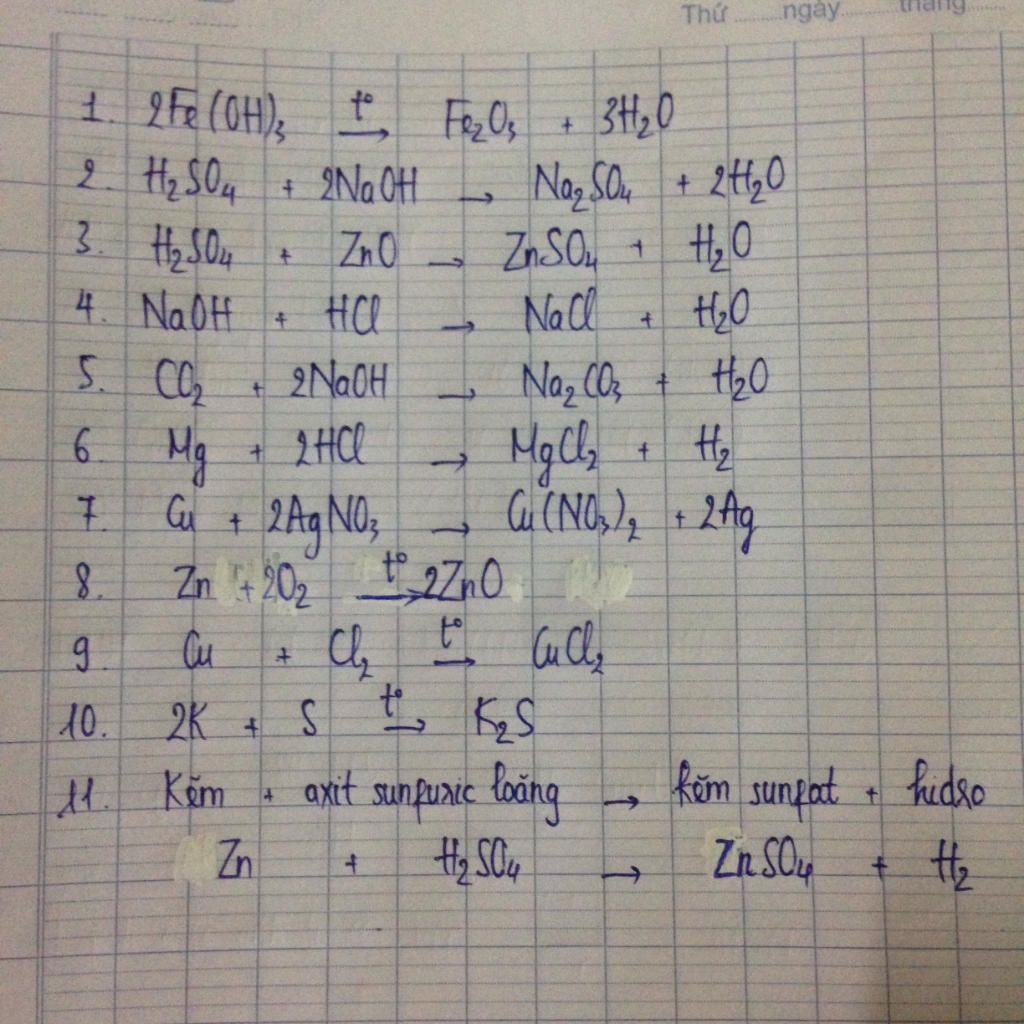 Thứ ........ ngày ........ tháng ........
1. 2Fe(OH)₃ —t°→ Fe₂O₃ + 3H₂O
2. H₂SO₄ + 2NaOH → Na₂SO₄ + 2H₂O
3. H₂SO₄ + ZnO → ZnSO₄ + H₂O
4. NaOH + HCl → NaCl + H₂O
5. CO₂ + 2NaOH → Na₂CO₃ + H₂O
6. Mg + 2HCl → MgCl₂ + H₂
7. Cu + 2AgNO₃ → Cu(NO₃)₂ + 2Ag
8. Zn + 2O₂ —t°→ 2ZnO
9. Cu + Cl₂ —t°→ CuCl₂
10. 2K + S —t°→ K₂S
11. Kẽm + axit sunfuric loãng → kẽm sunfat + hidro
Zn + H₂SO₄ → ZnSO₄ + H₂